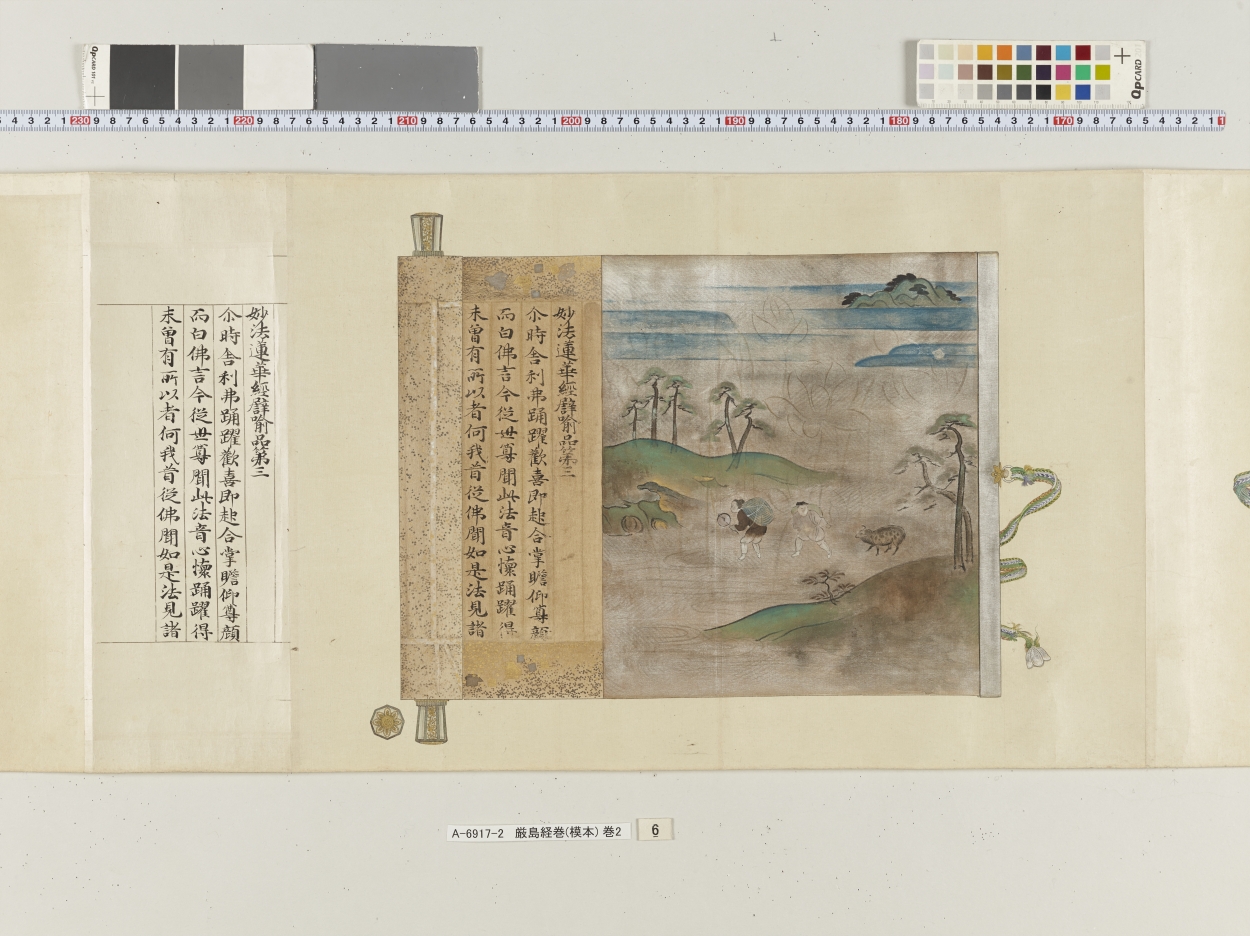 QPCARD 101
QPCARD
4 3 2 1 230 9 8 7 6 5 4 3 2 1 220 9 8 7 6 5 4 3 2 1 210 9 8 7 6 5 4 3 2 1 200 9 8 7 6 5 4 3 2 1 190 9 8 7 6 5 4 3 2 1 180 9 8 7 6 5 4 3 2 1 170 9 8 7 6 5 4 3 2 1 1
妙法蓮華經譬喻品第三
尒時舎利弗踊躍歡喜即起合掌瞻仰尊顔
而白佛言今從世尊聞此法音心懷踊躍得
未曽有所以者何我昔從佛聞如是法見諸
妙法蓮華經譬喻品第三
尒時舎利弗踊躍歡喜即起合掌瞻仰尊顔
而白佛言今從世尊聞此法音心懷踊躍得
未曽有所以者何我昔從佛聞如是法見諸
A-6917-2 厳島経巻(模本) 巻2
6